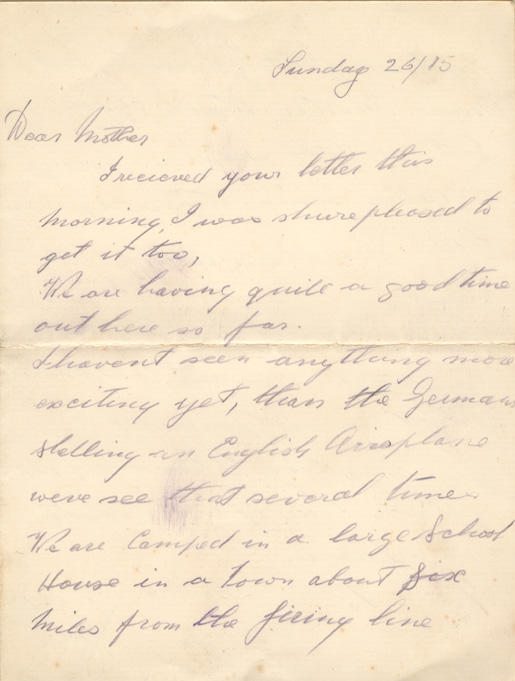 Sunday 26/15
Dear Mother
I recieved your letter this
morning, I was shure pleased to
get it too,
We are having quite a good time
out here so far.
I havent seen anything more
exciting yet, than the Germans
shelling an English Airoplane
weve see that several times
We are Camped in a large School
House in a town about six
miles from the firing line